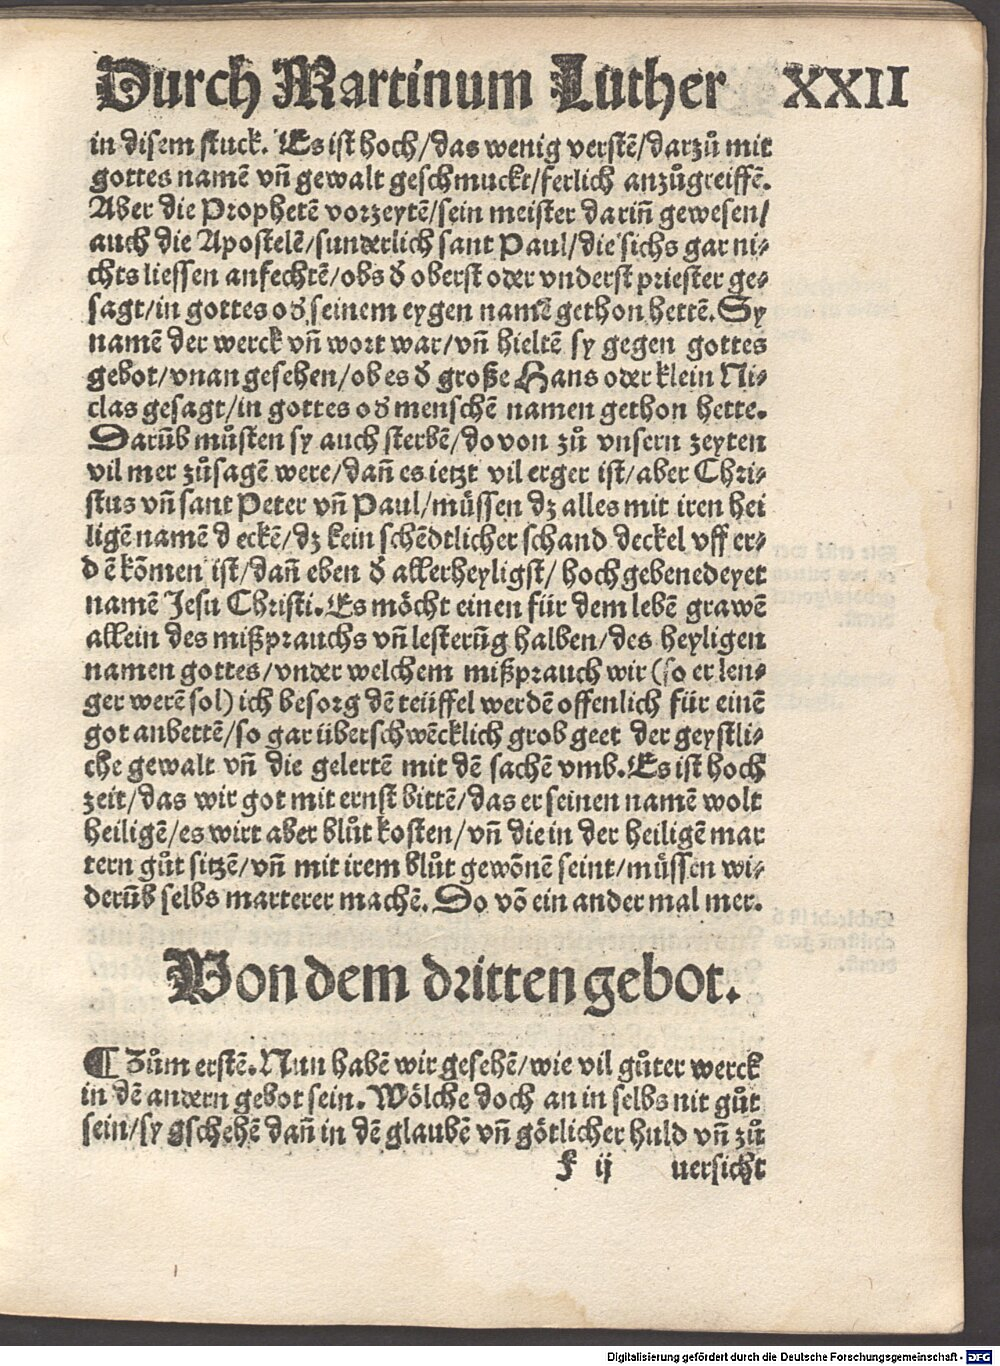 Durch Martinum Luther XXII
in disem stuck. Es ist hoch/das wenig verstē/darzů mit
gottes namē vñ gewalt geschmuckt/ferlich anzůgreiffē.
Aber die Prophetē vorzeytē/sein meister dariñ gewesen/
auch die Apostelē/sunderlich sant Paul/die sichs gar ni⸗
chts liessen anfechtē/obs d̕ oberst oder vnderst priester ge⸗
sagt/in gottes od̕ seinem eygen namē gethon hettē. Sy
namē der werck vñ wort war/vñ hieltē sy gegen gottes
gebot/vnangesehen/ob es d̕ große Hans oder klein Ni⸗
clas gesagt/in gottes od̕ menschē namen gethon hette.
Darūb můsten sy auch sterbē/do von zů vnsern zeyten
vil mer zůsagē were/dañ es ietzt vil erger ist/aber Chri⸗
stus vñ sant Peter vñ Paul/müssen dz alles mit iren hei
ligē namē deckē/dz kein schēdtlicher schand deckel vff er⸗
dē kōmen ist/dañ eben d̕ allerheyligst/ hochgebenedeyet
namē Jesu Christi. Es möcht einen für dem lebē grawē
allein des mißprauchs vñ lesterūg halben/des heyligen
namen gottes/vnder welchem mißprauch wir (so er len⸗
ger werē sol) ich besorg dē teüffel werdē offenlich für einē
got anbettē/so gar überschwēcklich grob geet der geystli⸗
che gewalt vñ die gelertē mit dē sachē vmb. Es ist hoch
zeit/das wir got mit ernst bittē/das er seinen namē wolt
heiligē/es wirt aber blůt kosten/vñ die in der heiligē mar
tern gůt sitzē/vñ mit irem blůt gewōnē seint/müssen wi⸗
derūb selbs marterer machē. Do vō ein ander mal mer.
Von dem dritten gebot.
¶ Zům erstē. Nun habē wir gesehē/wie vil gůter werck
in dē andern gebot sein. Wölche doch an in selbs nit gůt
sein/sy gschehē dañ in dē glaubē vñ götlicher huld vñ zů
f ij uersicht
Digitalisierung gefördert durch die Deutsche Forschungsgemeinschaft - DFG